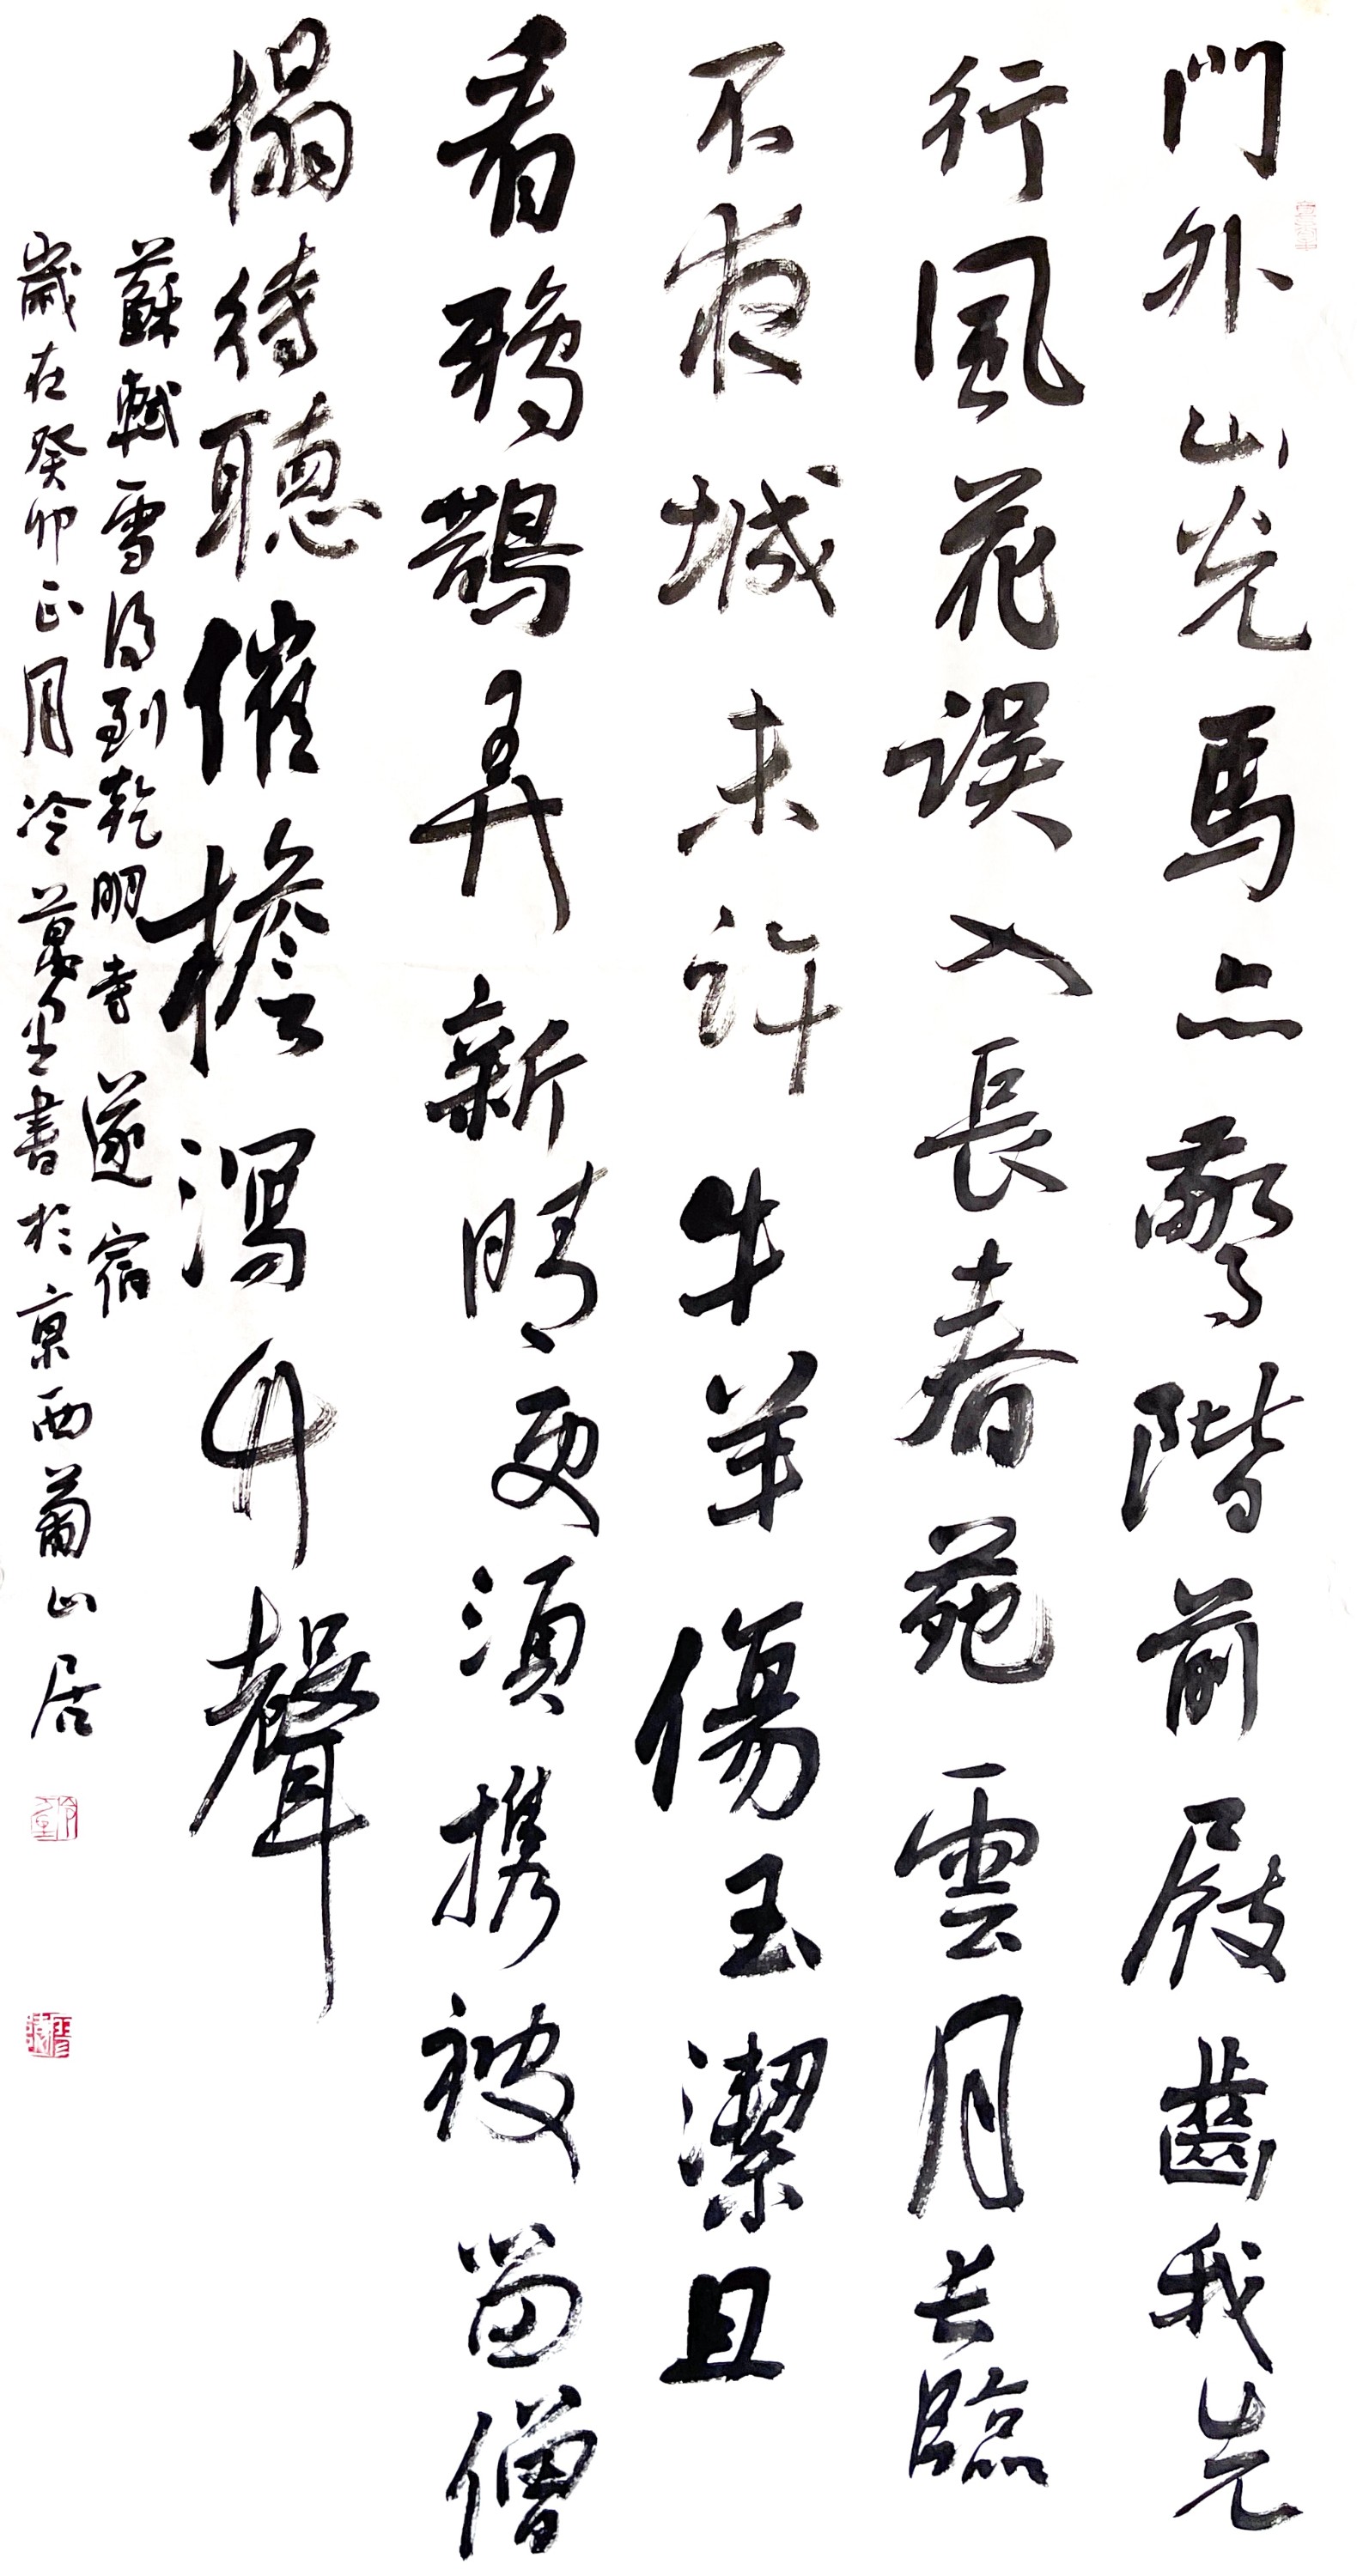 門外山光馬亦驚階前屐齒我先
行風花誤入長春苑雲月长臨
不夜城未許牛羊傷玉潔且
看鴉鵲弄新晴更須携被留僧
榻待聽催檐瀉竹聲
蘇軾雪後到乾明寺遂宿
歲在癸卯正月冷書於京西葡山居